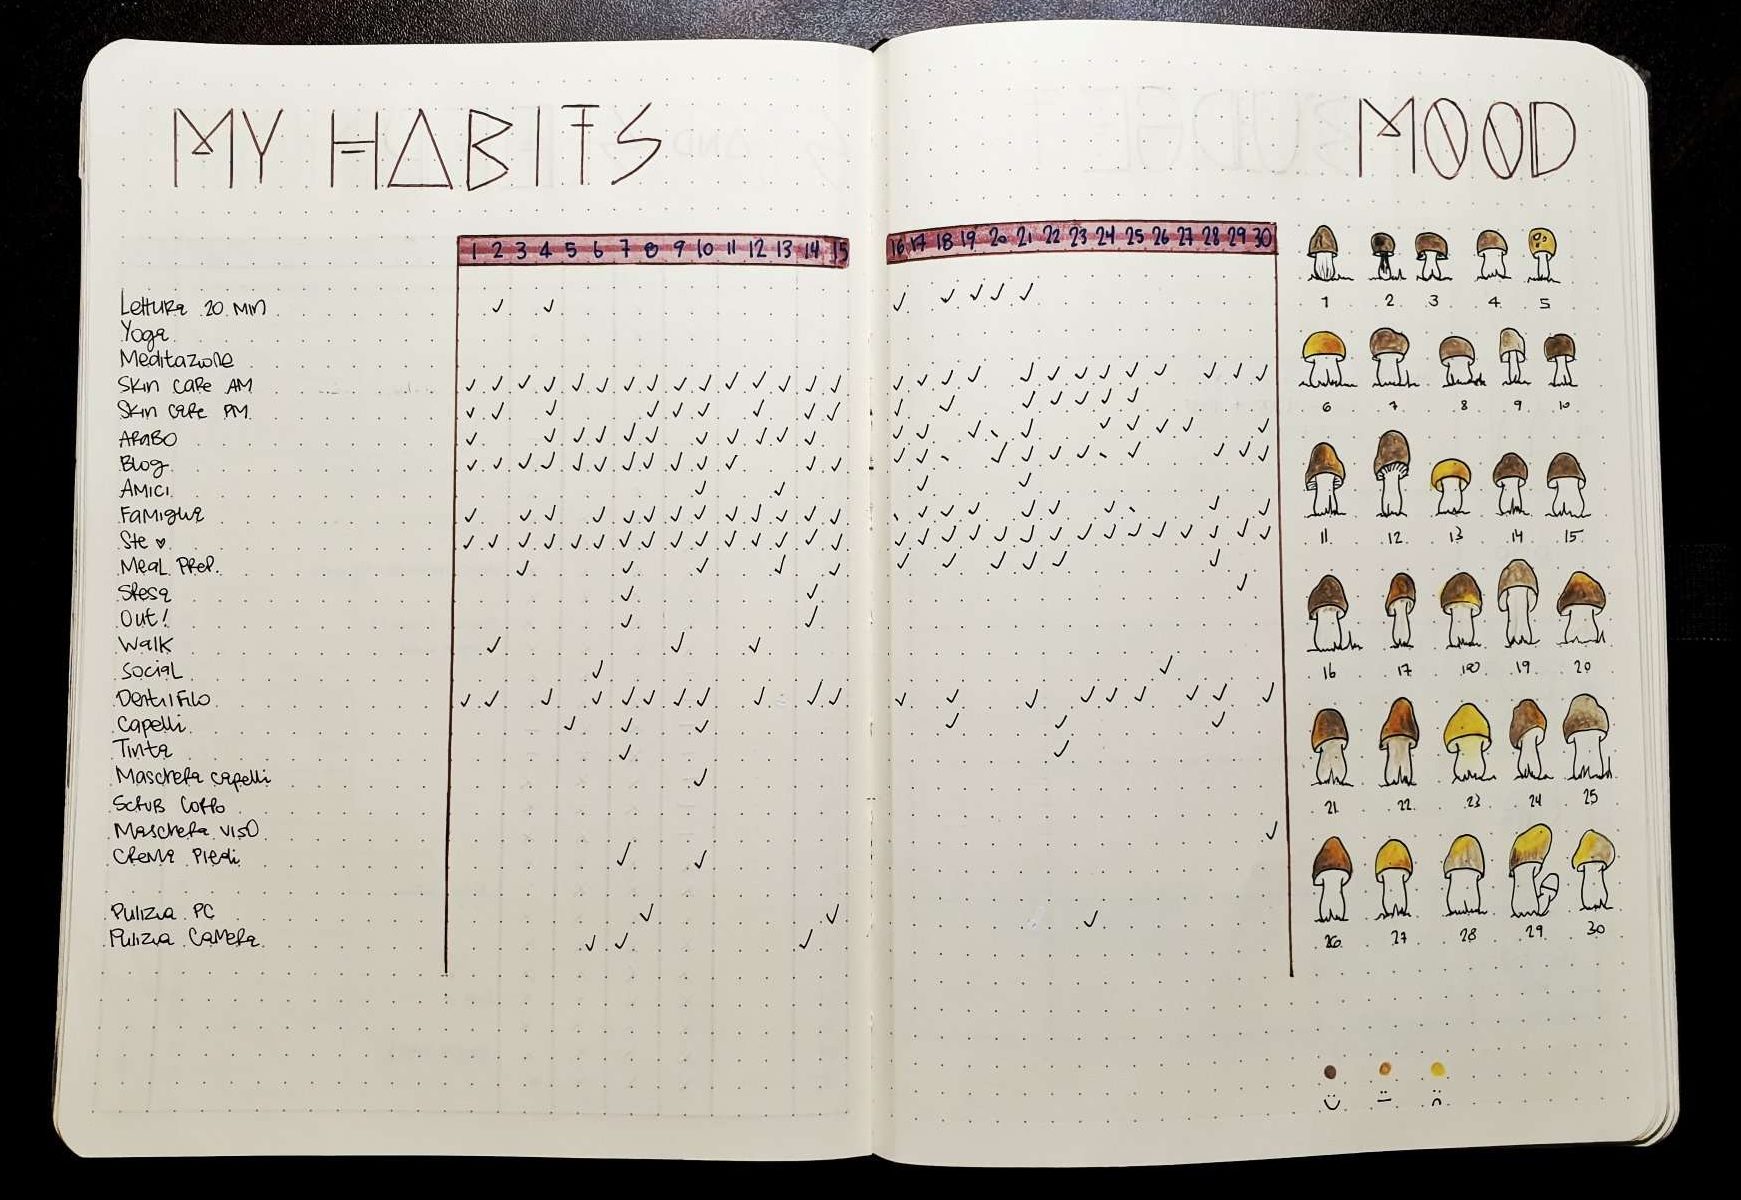 MY HABITS
MOOD
1 2 3 4 5 6 7 8 9 10 11 12 13 14 15
16 17 18 19 20 21 22 23 24 25 26 27 28 29 30
Lettura 20 min
Yoga
Meditazione
Skin care AM
Skin care PM
Arabo
Blog
Amici
Famiglia
Ste ♥
Meal Prep.
Spesa
Out!
Walk
Social
Denti/Filo
Capelli
Tinta
Maschera capelli
Scrub Corpo
Maschera viso
Crema Piedi
Pulizia PC
Pulizia Camera
1 2 3 4 5
6 7 8 9 10
11 12 13 14 15
16 17 18 19 20
21 22 23 24 25
26 27 28 29 30